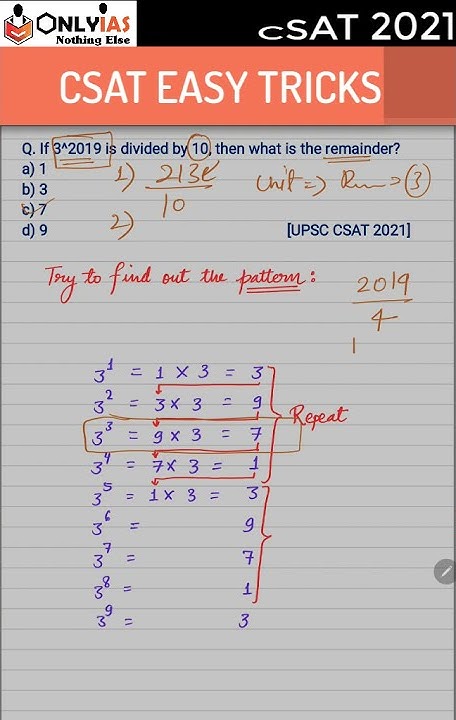 ONLYIAS
Nothing Else
CSAT 2021
CSAT EASY TRICKS
Q. If 3^2019 is divided by 10, then what is the remainder?
a) 1
b) 3
c) 7
d) 9
[UPSC CSAT 2021]
1)
10
Unit => Rem => 3
2)
Try to find out the pattern :
2019
4
1
3¹ = 1 × 3 = 3
3² = 3 × 3 = 9
3³ = 9 × 3 = 7
3⁴ = 7 × 3 = 1
3⁵ = 1 × 3 = 3
3⁶ = 9
3⁷ = 7
3⁸ = 1
3⁹ = 3
Repeat